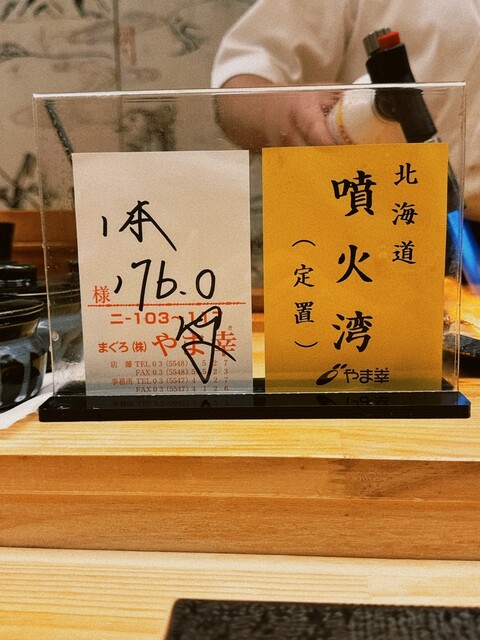 1本
様 176.0
ニ-103~1
まぐろ(株)やま幸
店舗 TEL 03 (5548)
FAX 03 (5548)
事務所 TEL 03 (5547)
FAX 03 (5547)
北海道
噴火湾
(定置)
やま幸